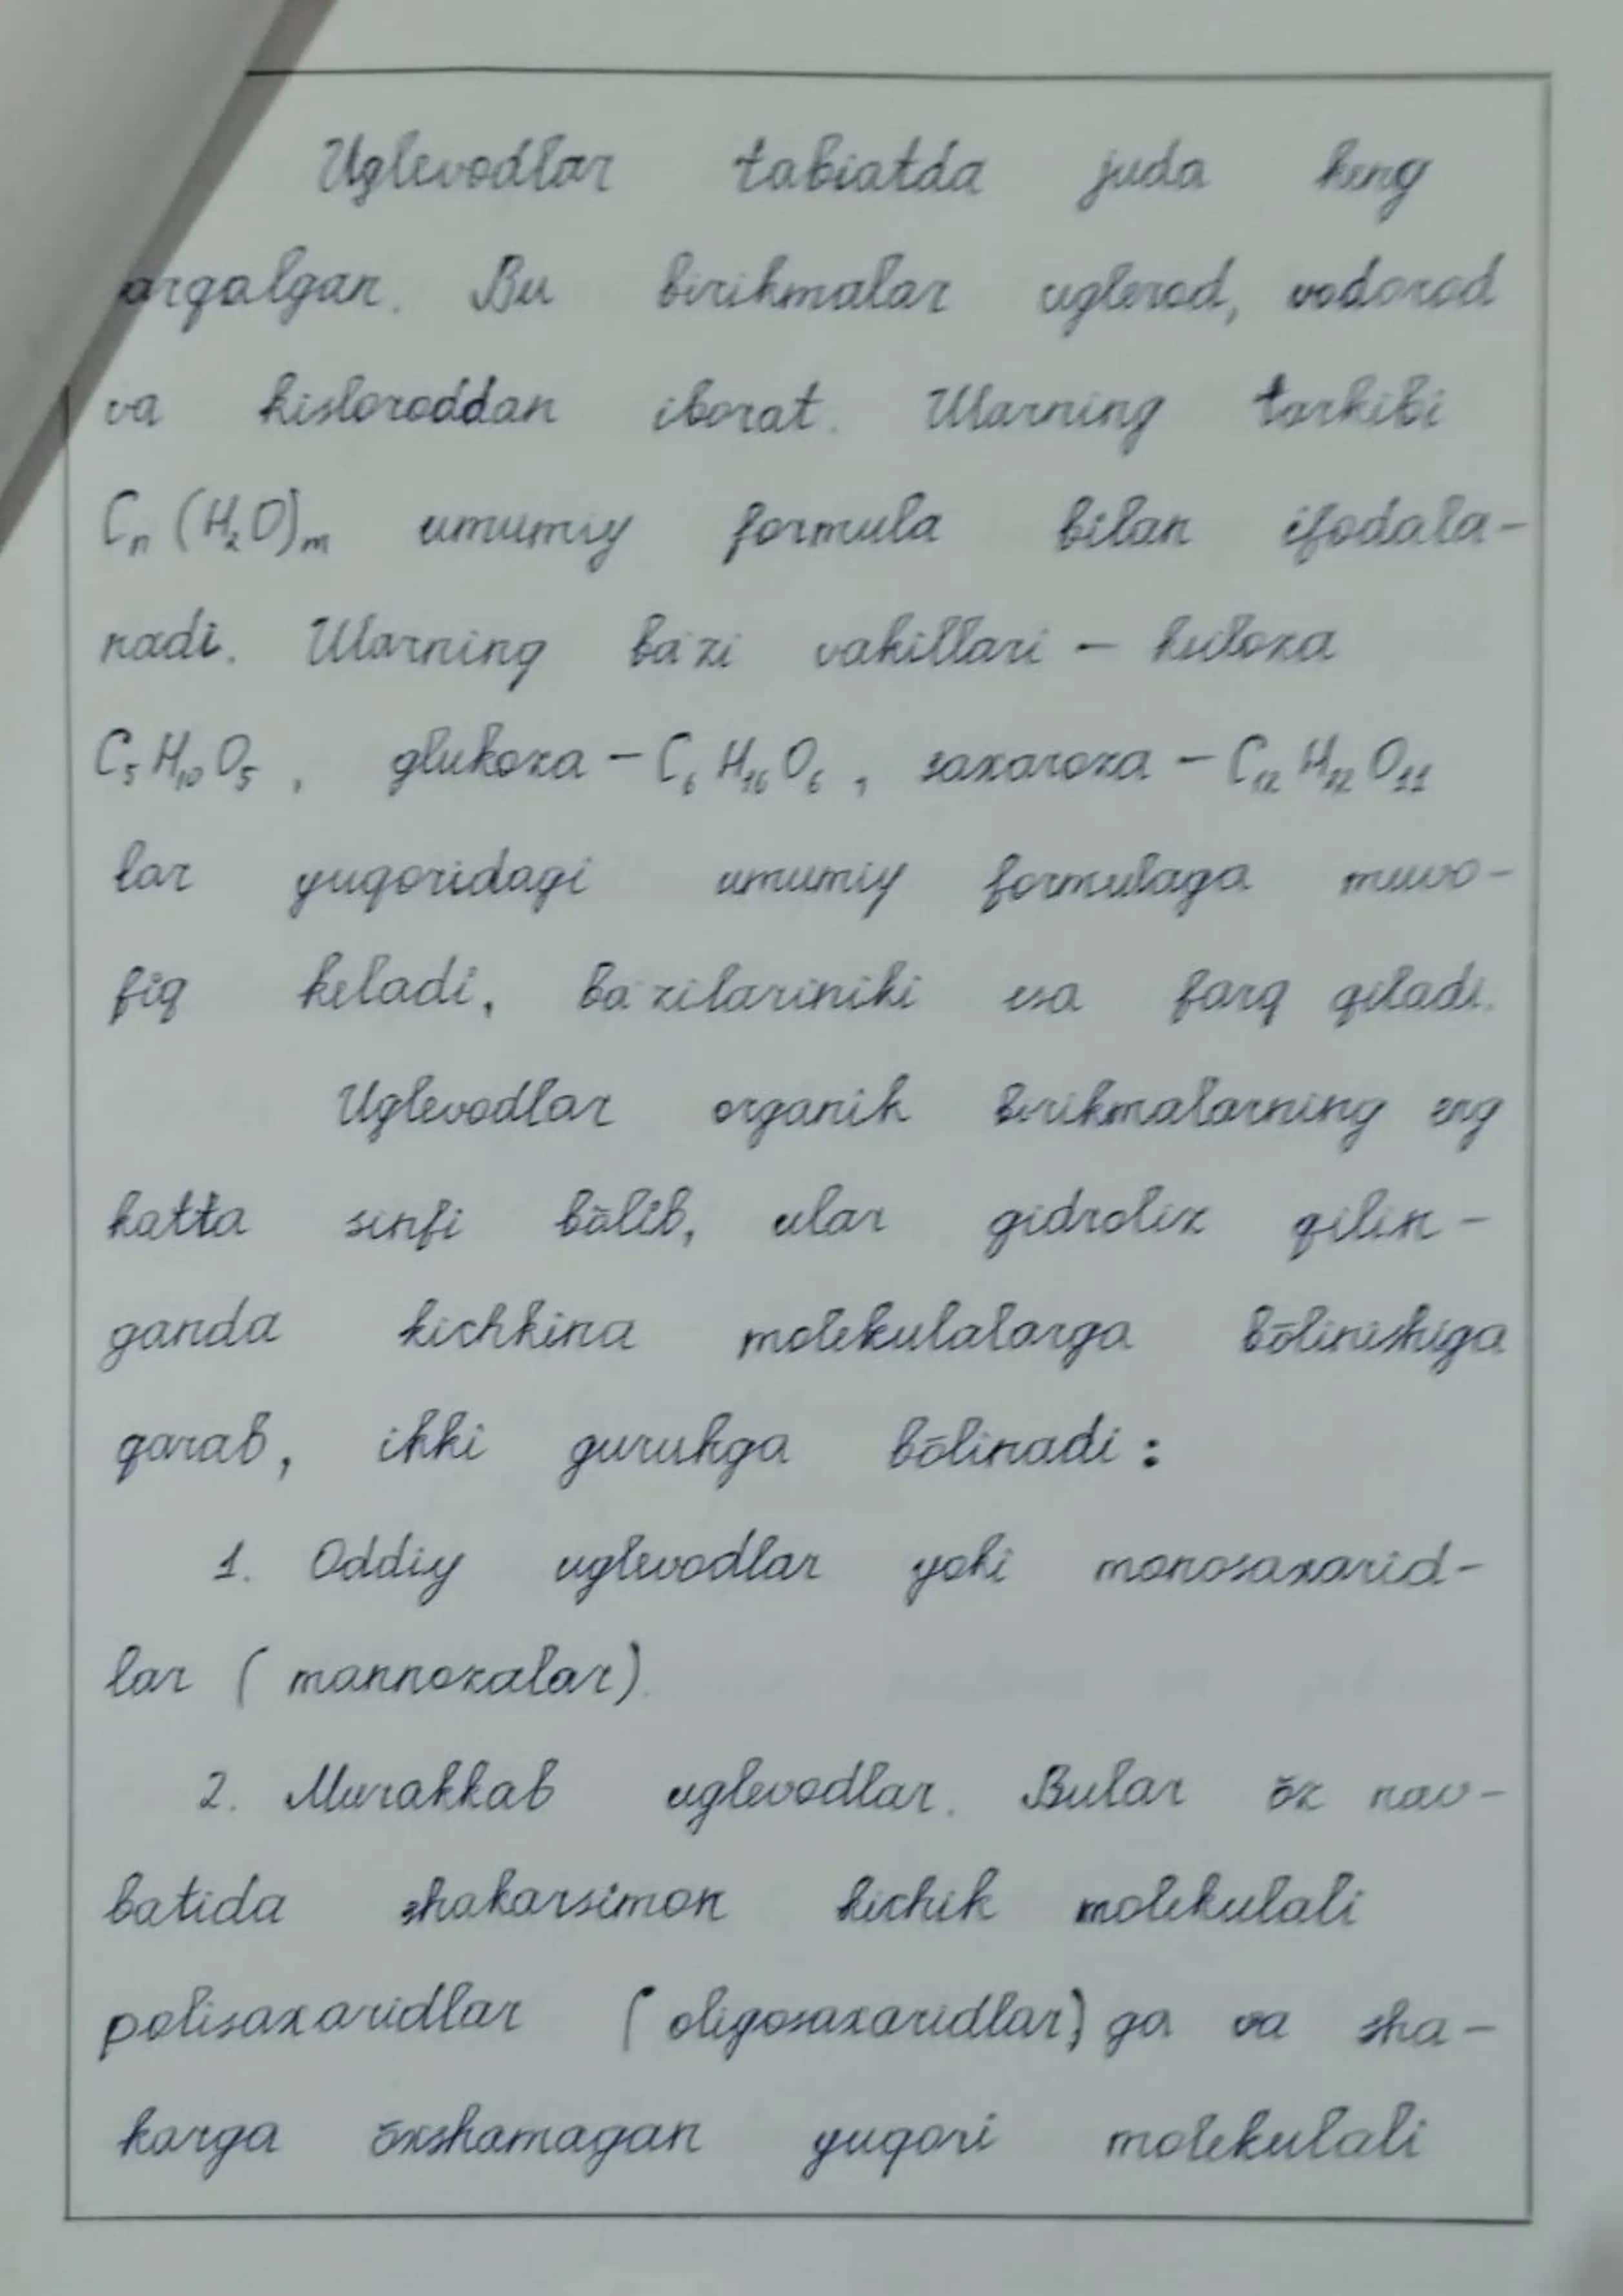 Uglevodlar tabiatda juda keng
arqalgan. Bu birikmalar uglerod, vodorod
va kisloroddan iborat. Ularning tarkibi
Cₙ(H₂O)ₘ umumiy formula bilan ifodala-
nadi. Ularning ba'zi vakillari –
C₅H₁₀O₅, glukoza – C₆H₁₆O₆, saxaroza – C₁₂H₂₂O₁₁
lar yuqoridagi umumiy formulaga muvo-
fiq keladi, ba'zilariniki esa farq qiladi.
Uglevodlar organik birikmalarning eng
katta sinfi bōlib, ular gidroliz qilin-
ganda kichkina molekulalarga bōlinishiga
qarab, ikki guruhga bōlinadi:
1. Oddiy uglevodlar yoki monosaxarid-
lar (mannozalar).
2. Murakkab uglevodlar. Bular ōz nav-
batida shakarsimon kichik molekulali
polisaxaridlar (oligosaxaridlar) ga va sha-
karga ōxshamagan yuqori molekulali